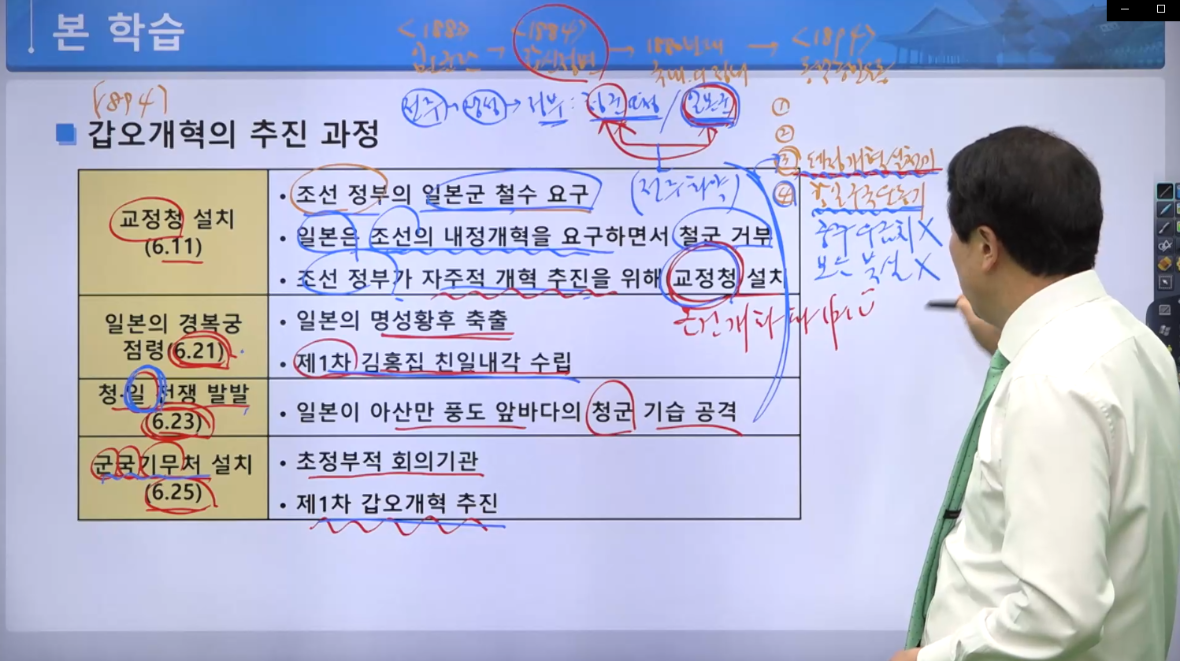 본 학습
<1882> <1884> <1894>
임오군란 → 갑신정변 → 1880년대 →
{1894}
전주 → 남성 → 정부: / 일본군
갑오개혁의 추진 과정
(전주화약)
①
②
③
④
X
X
교정청 설치
(6.11)
• 조선 정부의 일본군 철수 요구
• 일본은 조선의 내정개혁을 요구하면서 철군 거부
• 조선 정부가 자주적 개혁 추진을 위해 교정청 설치
온건개화파
일본의 경복궁
점령(6.21)
• 일본의 명성황후 축출
• 제1차 김홍집 친일내각 수립
청·일 전쟁 발발
(6.23)
• 일본이 아산만 풍도 앞바다의 청군 기습 공격
군국기무처 설치
(6.25)
• 초정부적 회의기관
• 제1차 갑오개혁 추진